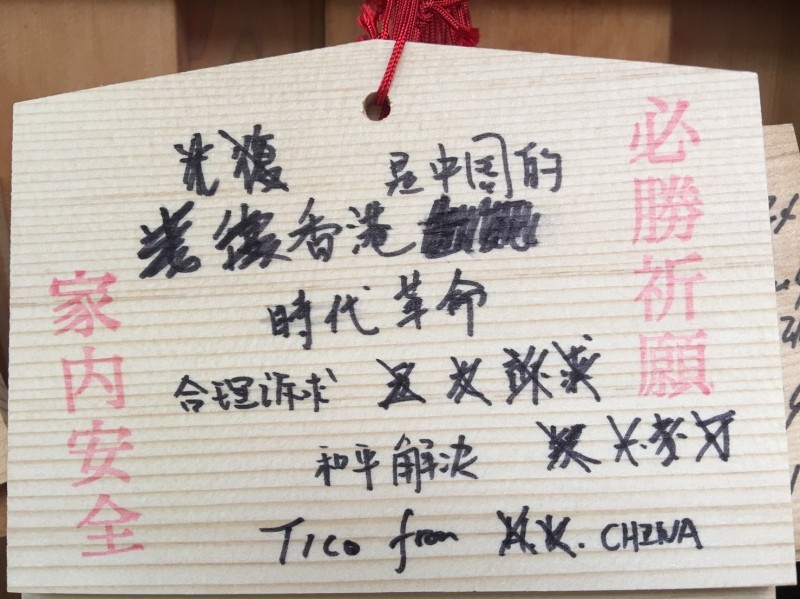 必勝祈願
光復 是中国的
香港
時代革命
合理诉求
和平解决
TICO from H.K. CHINA
家内安全